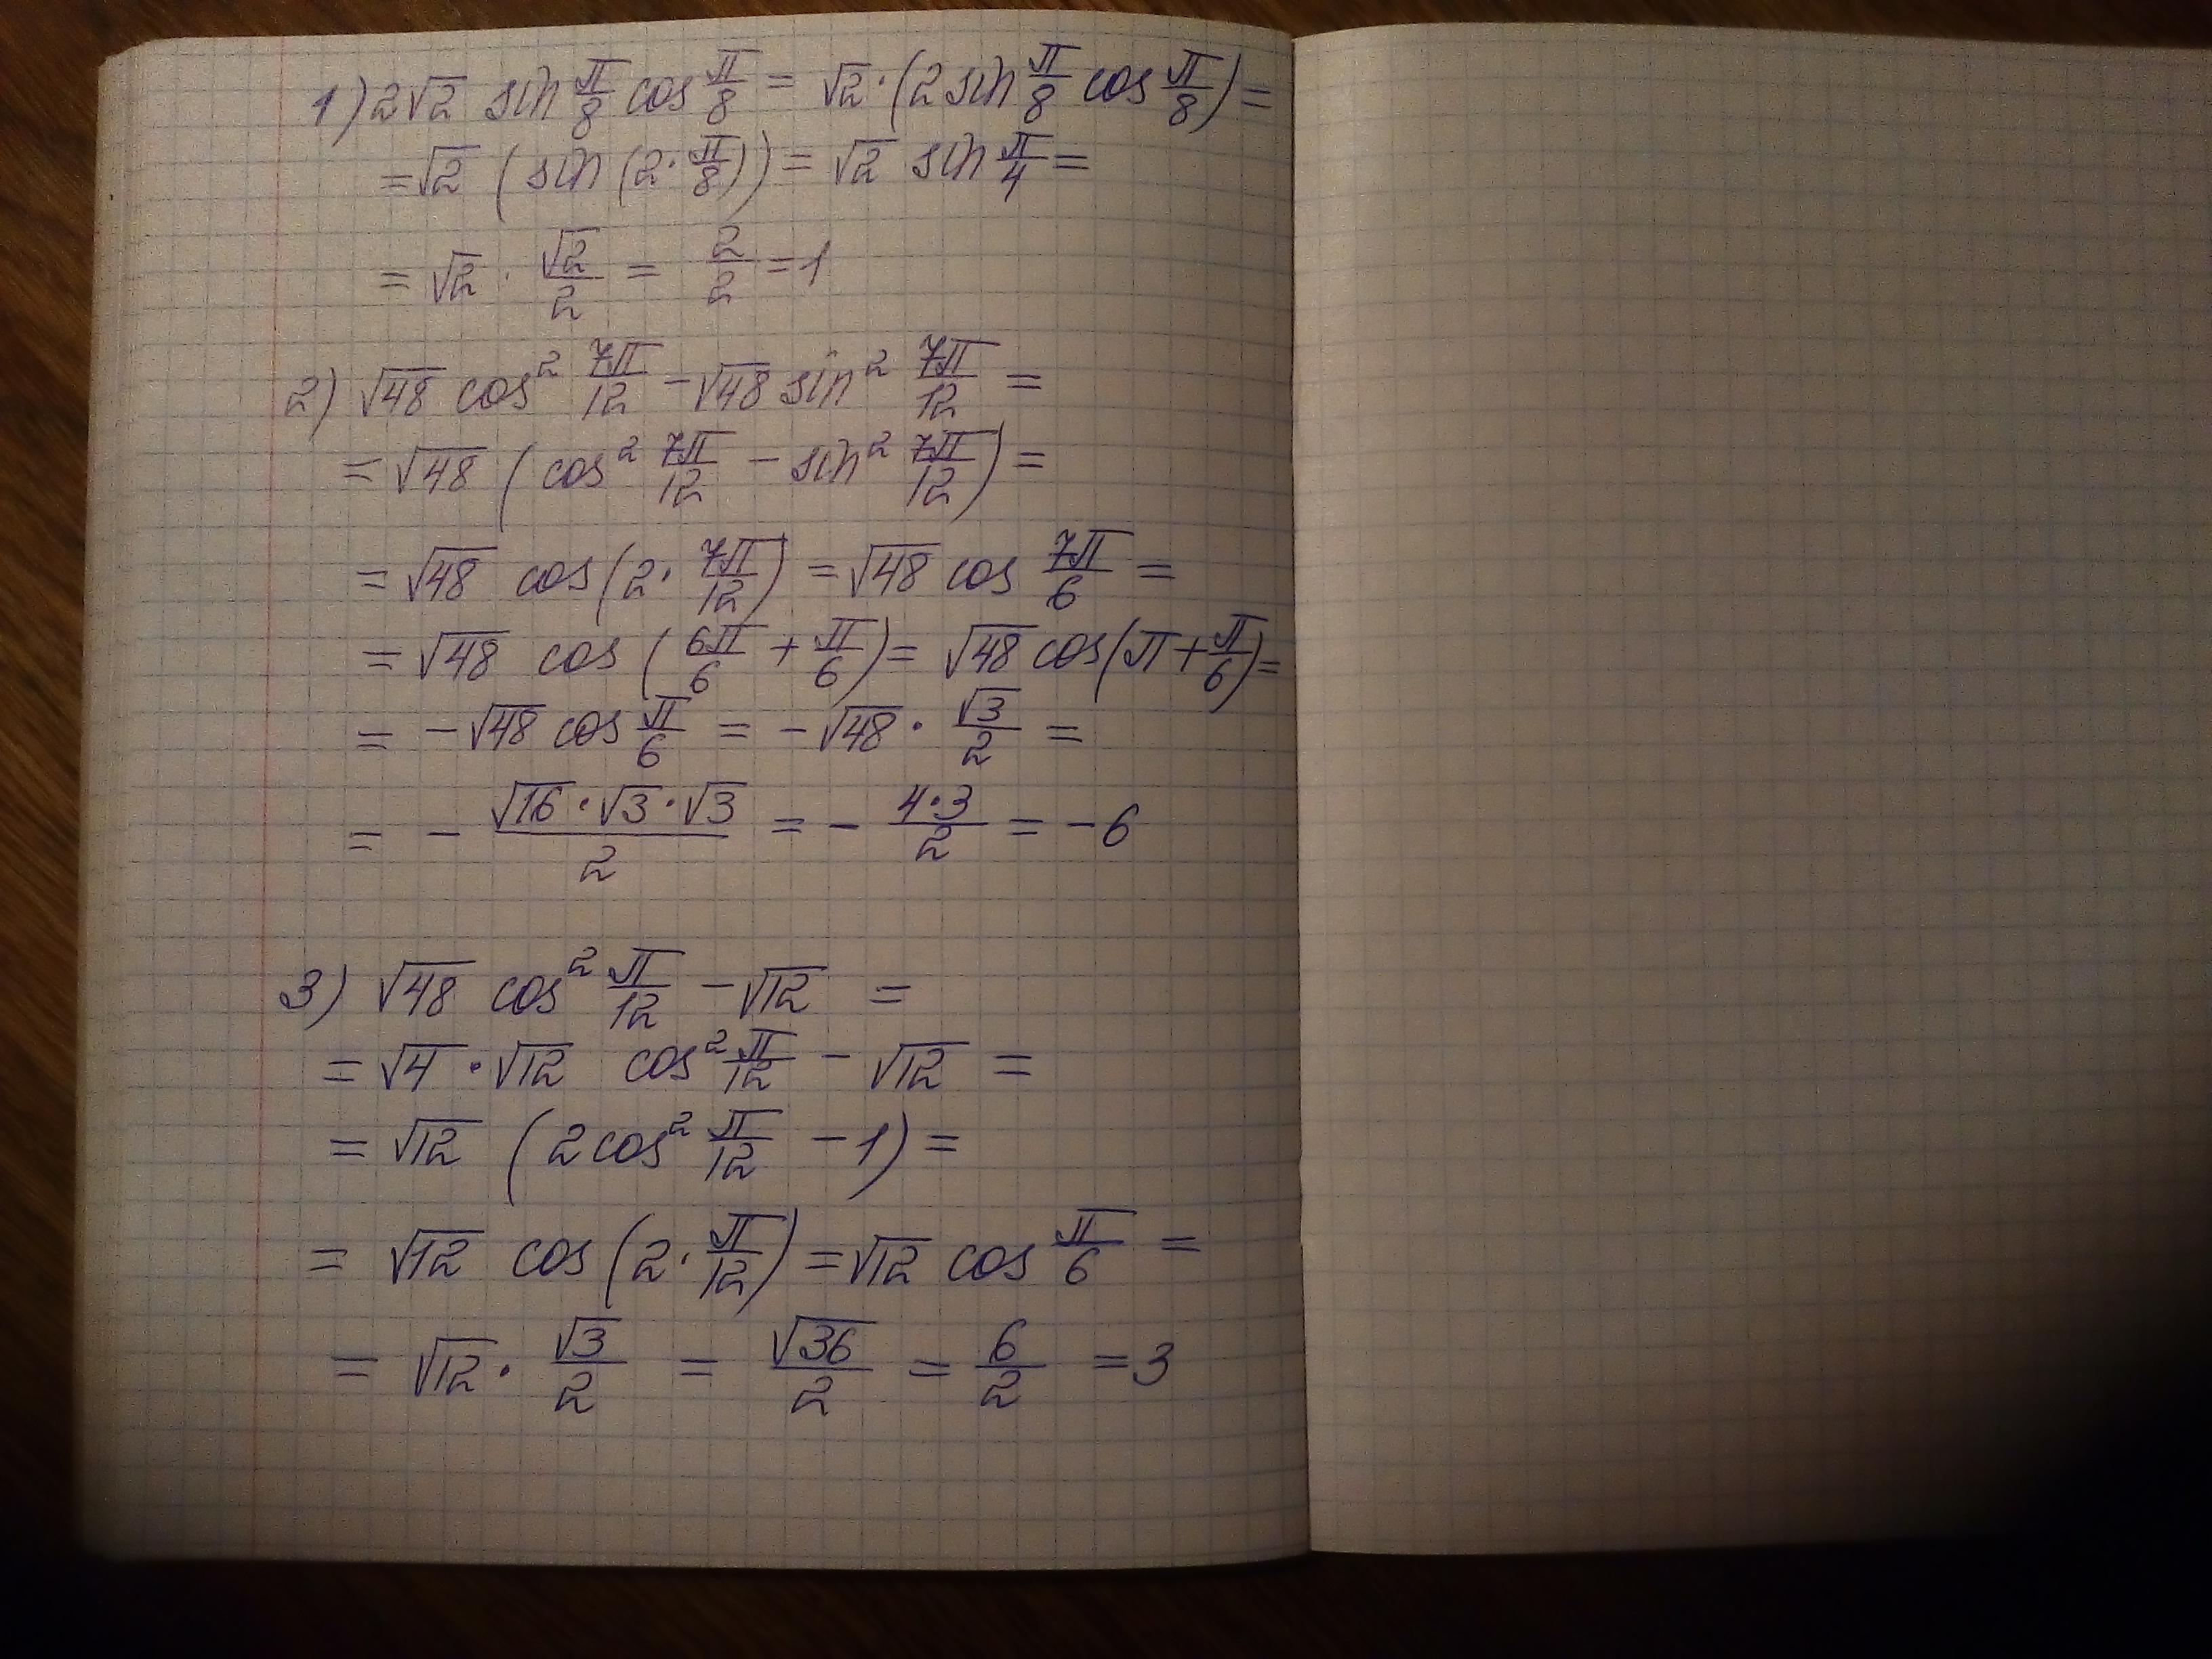 1) 2√2 sin π/8 cos π/8 = √2·(2 sin π/8 cos π/8) =
= √2 (sin (2· π/8)) = √2 sin π/4 =
= √2 · √2/2 = 2/2 = 1
2) √48 cos² 7π/12 − √48 sin² 7π/12 =
= √48 (cos² 7π/12 − sin² 7π/12) =
= √48 cos(2· 7π/12) = √48 cos 7π/6 =
= √48 cos (6π/6 + π/6) = √48 cos(π + π/6) =
= −√48 cos π/6 = −√48 · √3/2 =
= − √16·√3·√3/2 = − 4·3/2 = −6
3) √48 cos² π/12 − √12 =
= √4 ·√12 cos² π/12 − √12 =
= √12 (2cos² π/12 − 1) =
= √12 cos(2· π/12) = √12 cos π/6 =
= √12 · √3/2 = √36/2 = 6/2 = 3